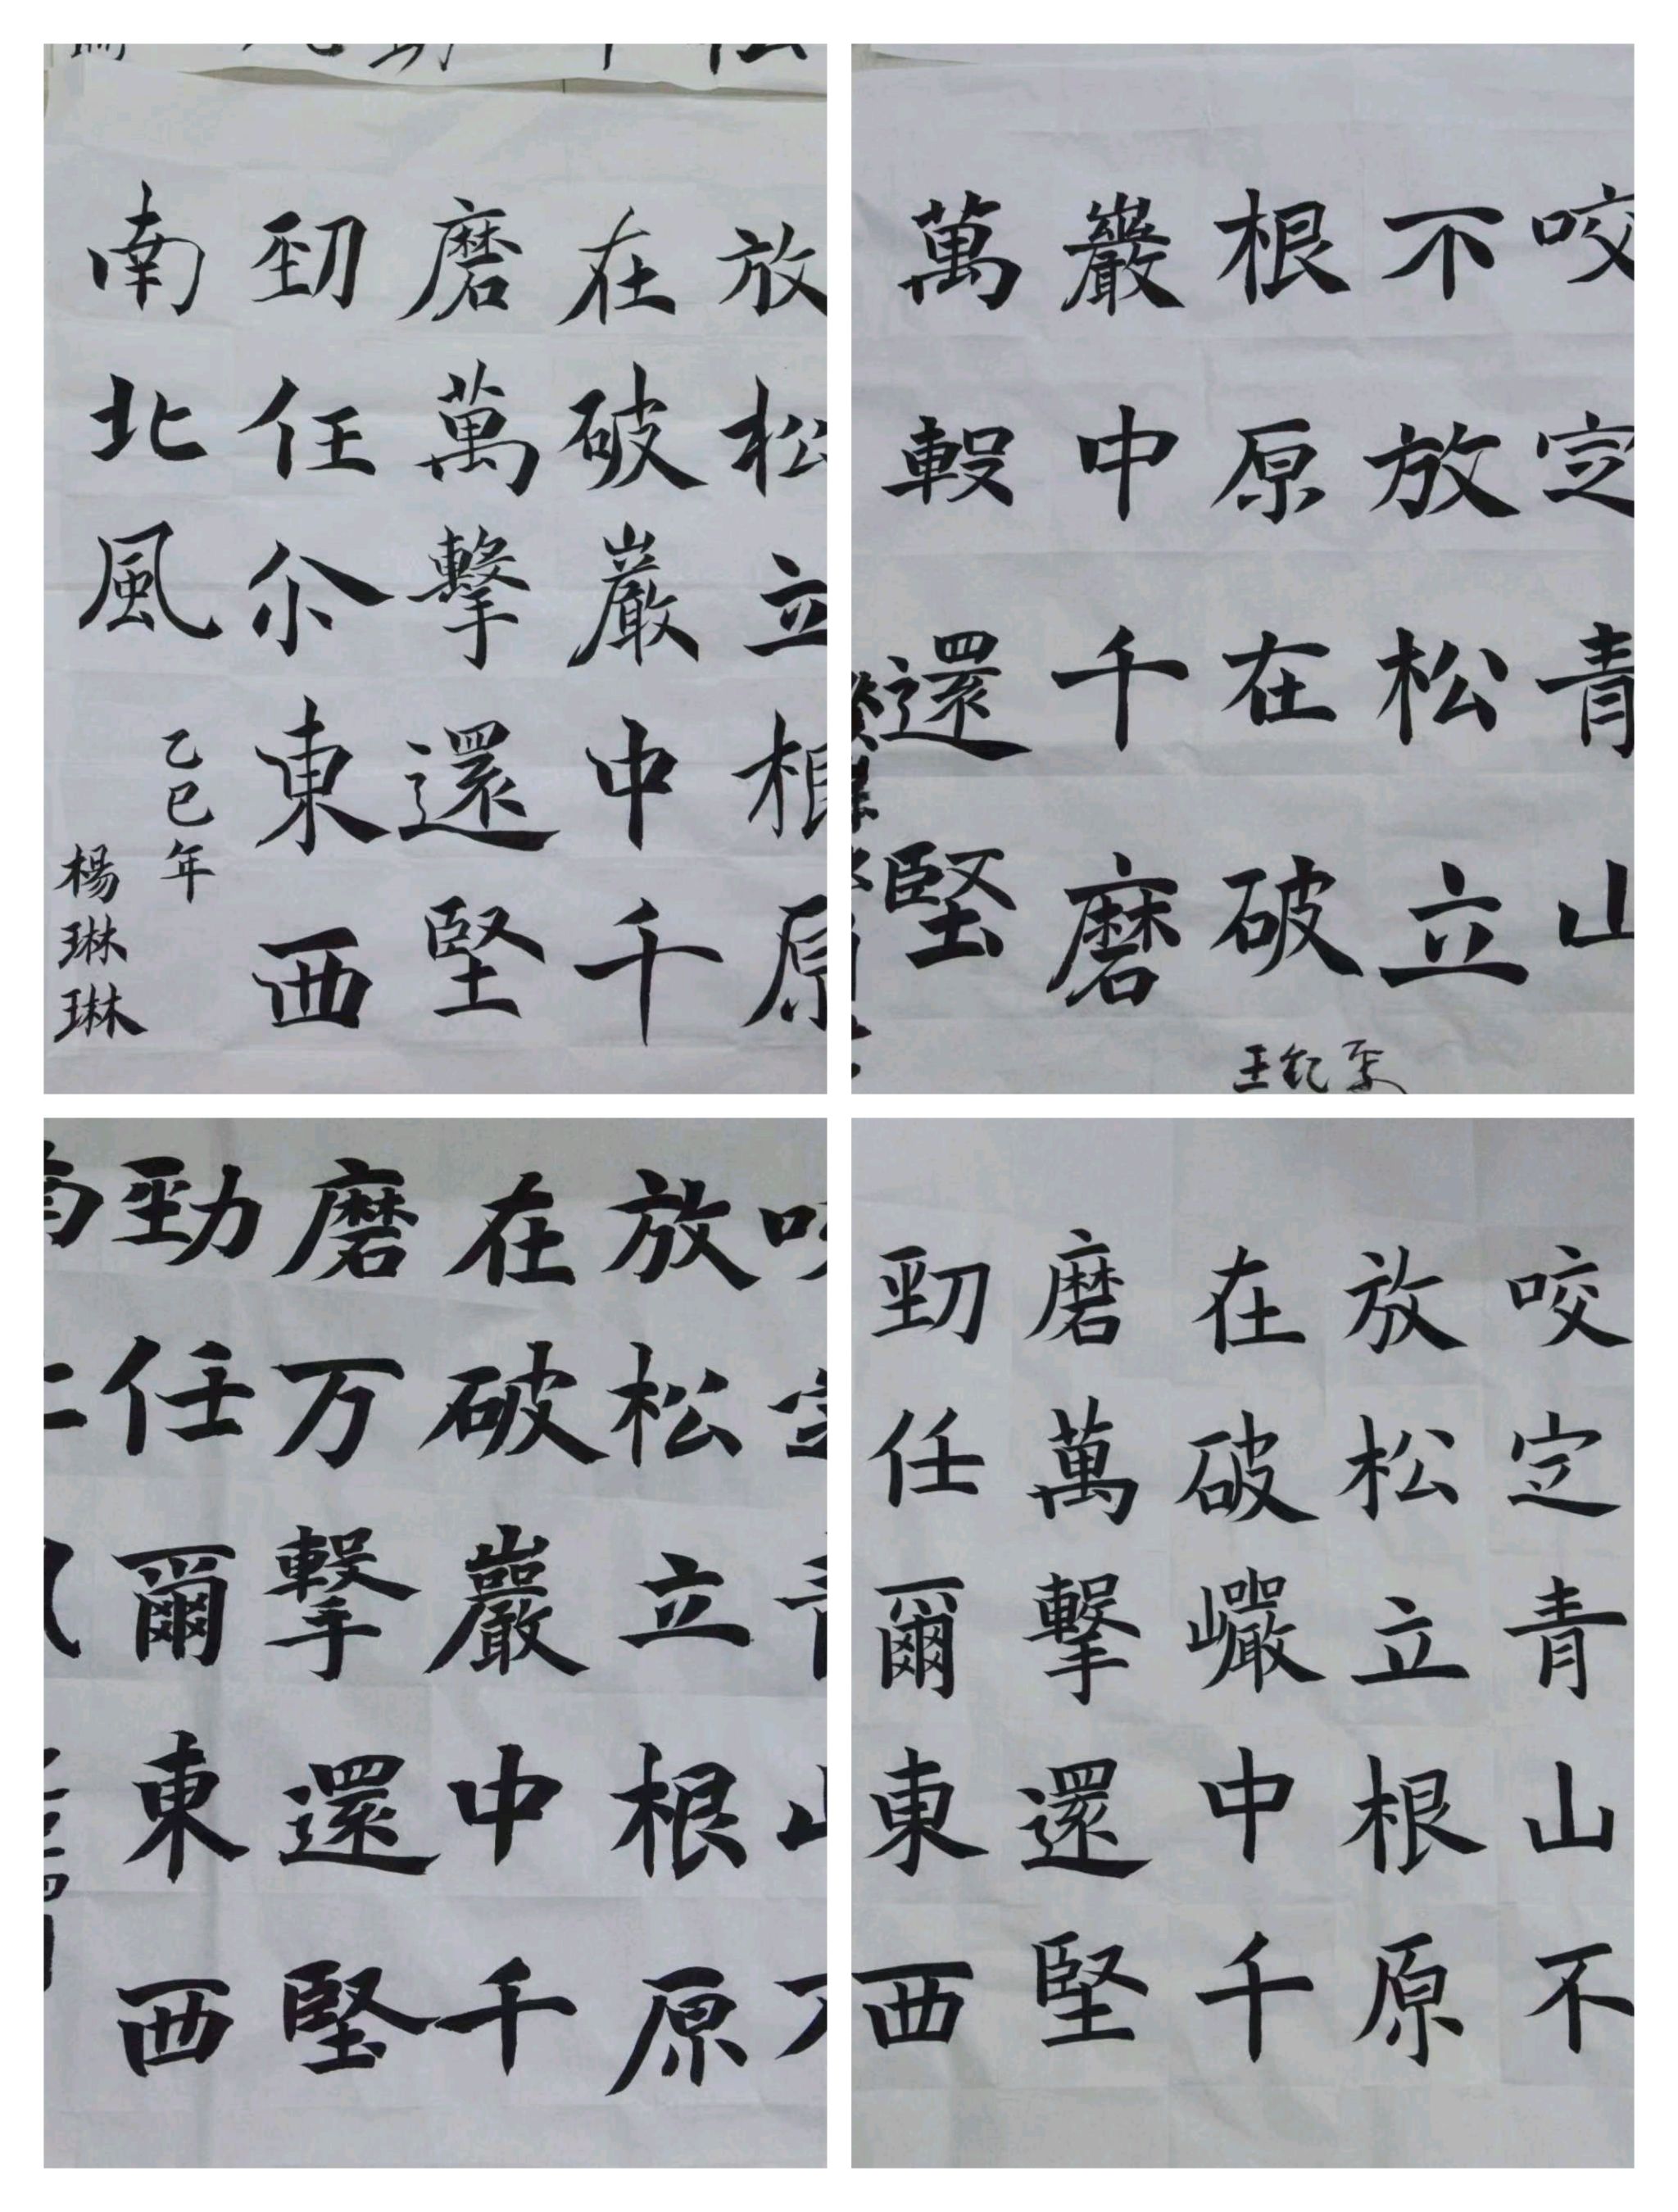 放松立根原
在破巖中千
磨萬擊還堅
勁任尒東西
南北風
乙巳年
楊琳琳
咬定青山
不放松立
根原在破
巖中千磨
萬還堅
放松立根原
在破巖中千
磨万擊還堅
勁任爾東西
咬定青山不
放松立根原
在破巗中千
磨萬擊還堅
勁任爾東西